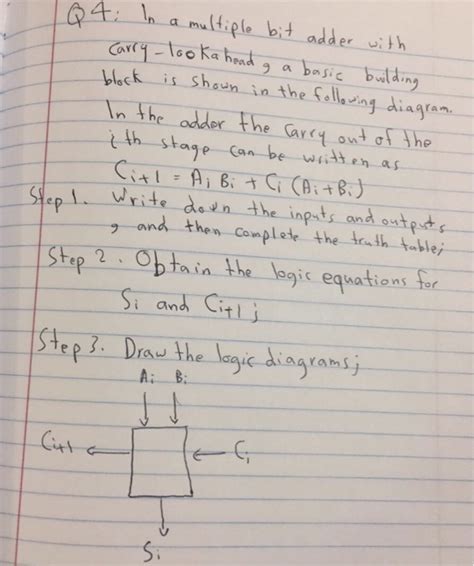 Q4: In a multiple bit adder with
carry-lookahead, a basic building
block is shown in the following diagram.
In the adder the carry out of the
ith stage can be written as
Ci+1 = Ai Bi + Ci (Ai+Bi)
Step 1. Write down the inputs and outputs
, and then complete the truth table;
Step 2. Obtain the logic equations for
Si and Ci+1;
Step 3. Draw the logic diagrams;
Ai Bi
Ci+1 Ci
Si